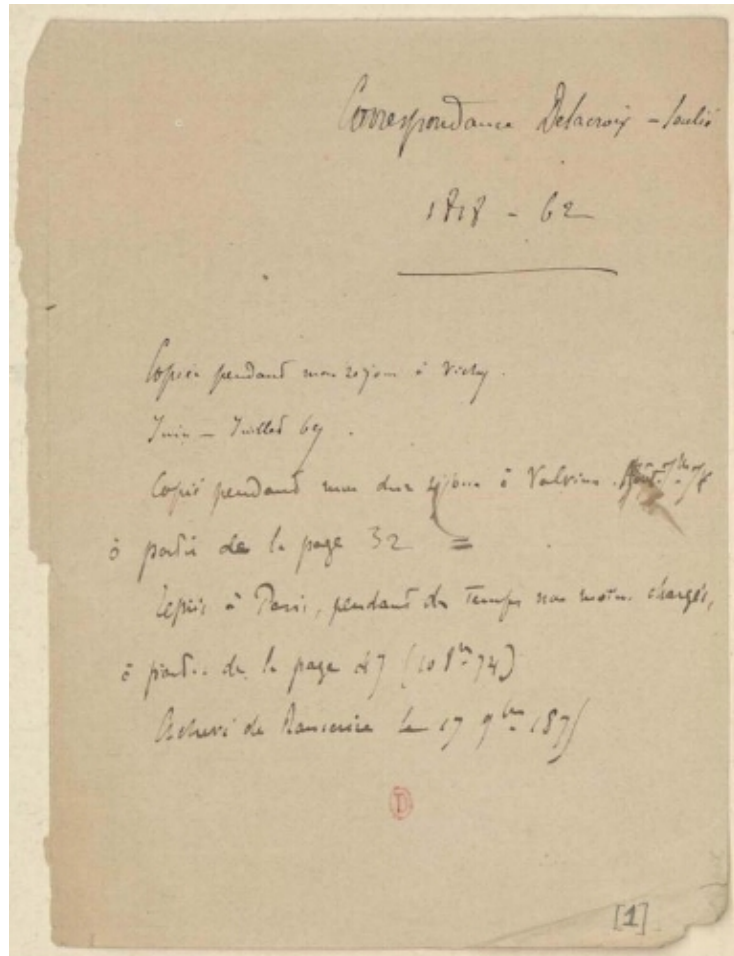 Correspondance Delacroix - Soulié
1818 - 62
Copié pendant mon séjour à Vichy.
Juin - Juillet 69.
Copié pendant mon séjour à Valvins.
à partir de la page 32 =
Repris à Paris, pendant des temps non moins chargés,
à partir de la page 47 (10 8bre 74)
Achevé de transcrire le 17 9bre 1875
D
[1]